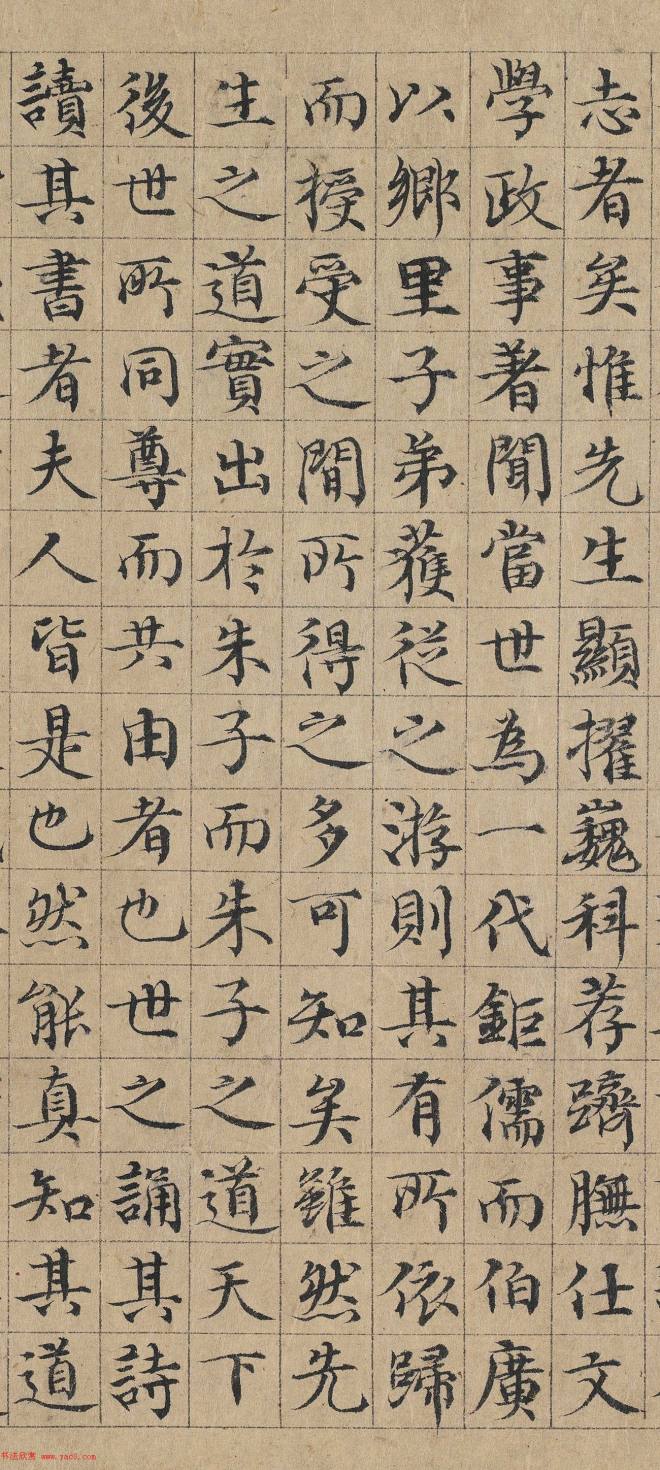 志者矣惟先生顯擢巍科荐躋膴仕文
學政事著聞當世為一代鉅儒而伯廣
以鄉里子弟獲從之游則其有所依歸
而授受之間所得之多可知矣雖然先
生之道實出於朱子而朱子之道天下
後世所同尊而共由者也世之誦其詩
讀其書者夫人皆是也然能真知其道
书法欣赏 www.yac8.com